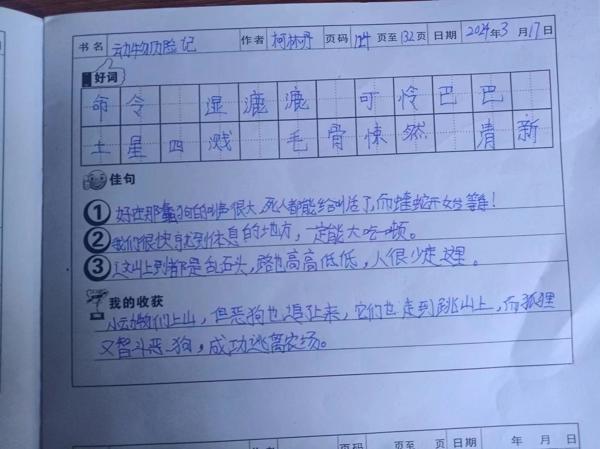 书名 动物历险记 作者 柯林丹 页码 124 页至132页 日期 2024年3月17日
好词
命令 湿漉漉 可怜巴巴
土星四溅 毛骨悚然 清新
佳句
①好在那 狗的叫声很大,死人都能给叫活了,而蝰蛇开始等!
②我们很快就到休息的地方,一定能大吃一顿。
③这山上到都是乱石头,路也高高低低,人很少走这里。
我的收获
小动物们上山,但恶狗也追上来,它们也走到跳山上,而狐狸
又智斗恶狗,成功逃离农场。
页码 页至 页 日期 年 月 日